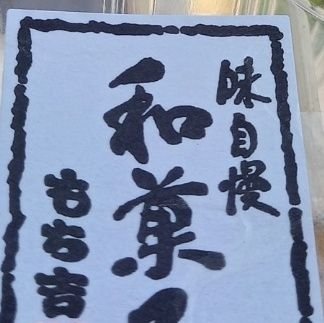 味自慢
和菓子
もち吉